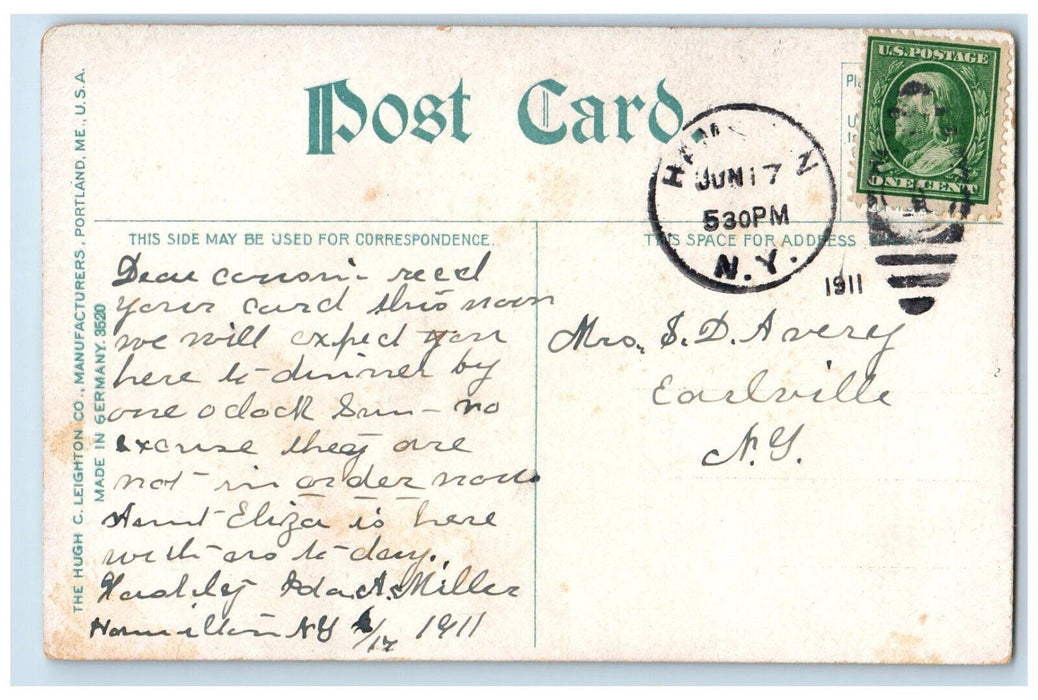 Post Card
U.S. POSTAGE
ONE CENT
HAM N
JUN 17
530PM
N.Y.
1911
THE HUGH C. LEIGHTON CO., MANUFACTURERS, PORTLAND, ME., U.S.A.
MADE IN GERMANY. 3520
THIS SIDE MAY BE USED FOR CORRESPONDENCE.
THIS SPACE FOR ADDRESS
Dear cousin - recd
your card this noon
we will expect you
here to dinner by
one oclock Sun - no
excuse they are
not in order now
Aunt Eliza is here
with us to-day.
Hastily Ida A. Miller
Hamilton NY 6/17 1911
Mrs. S. D. Avery
Earlville
N.Y.